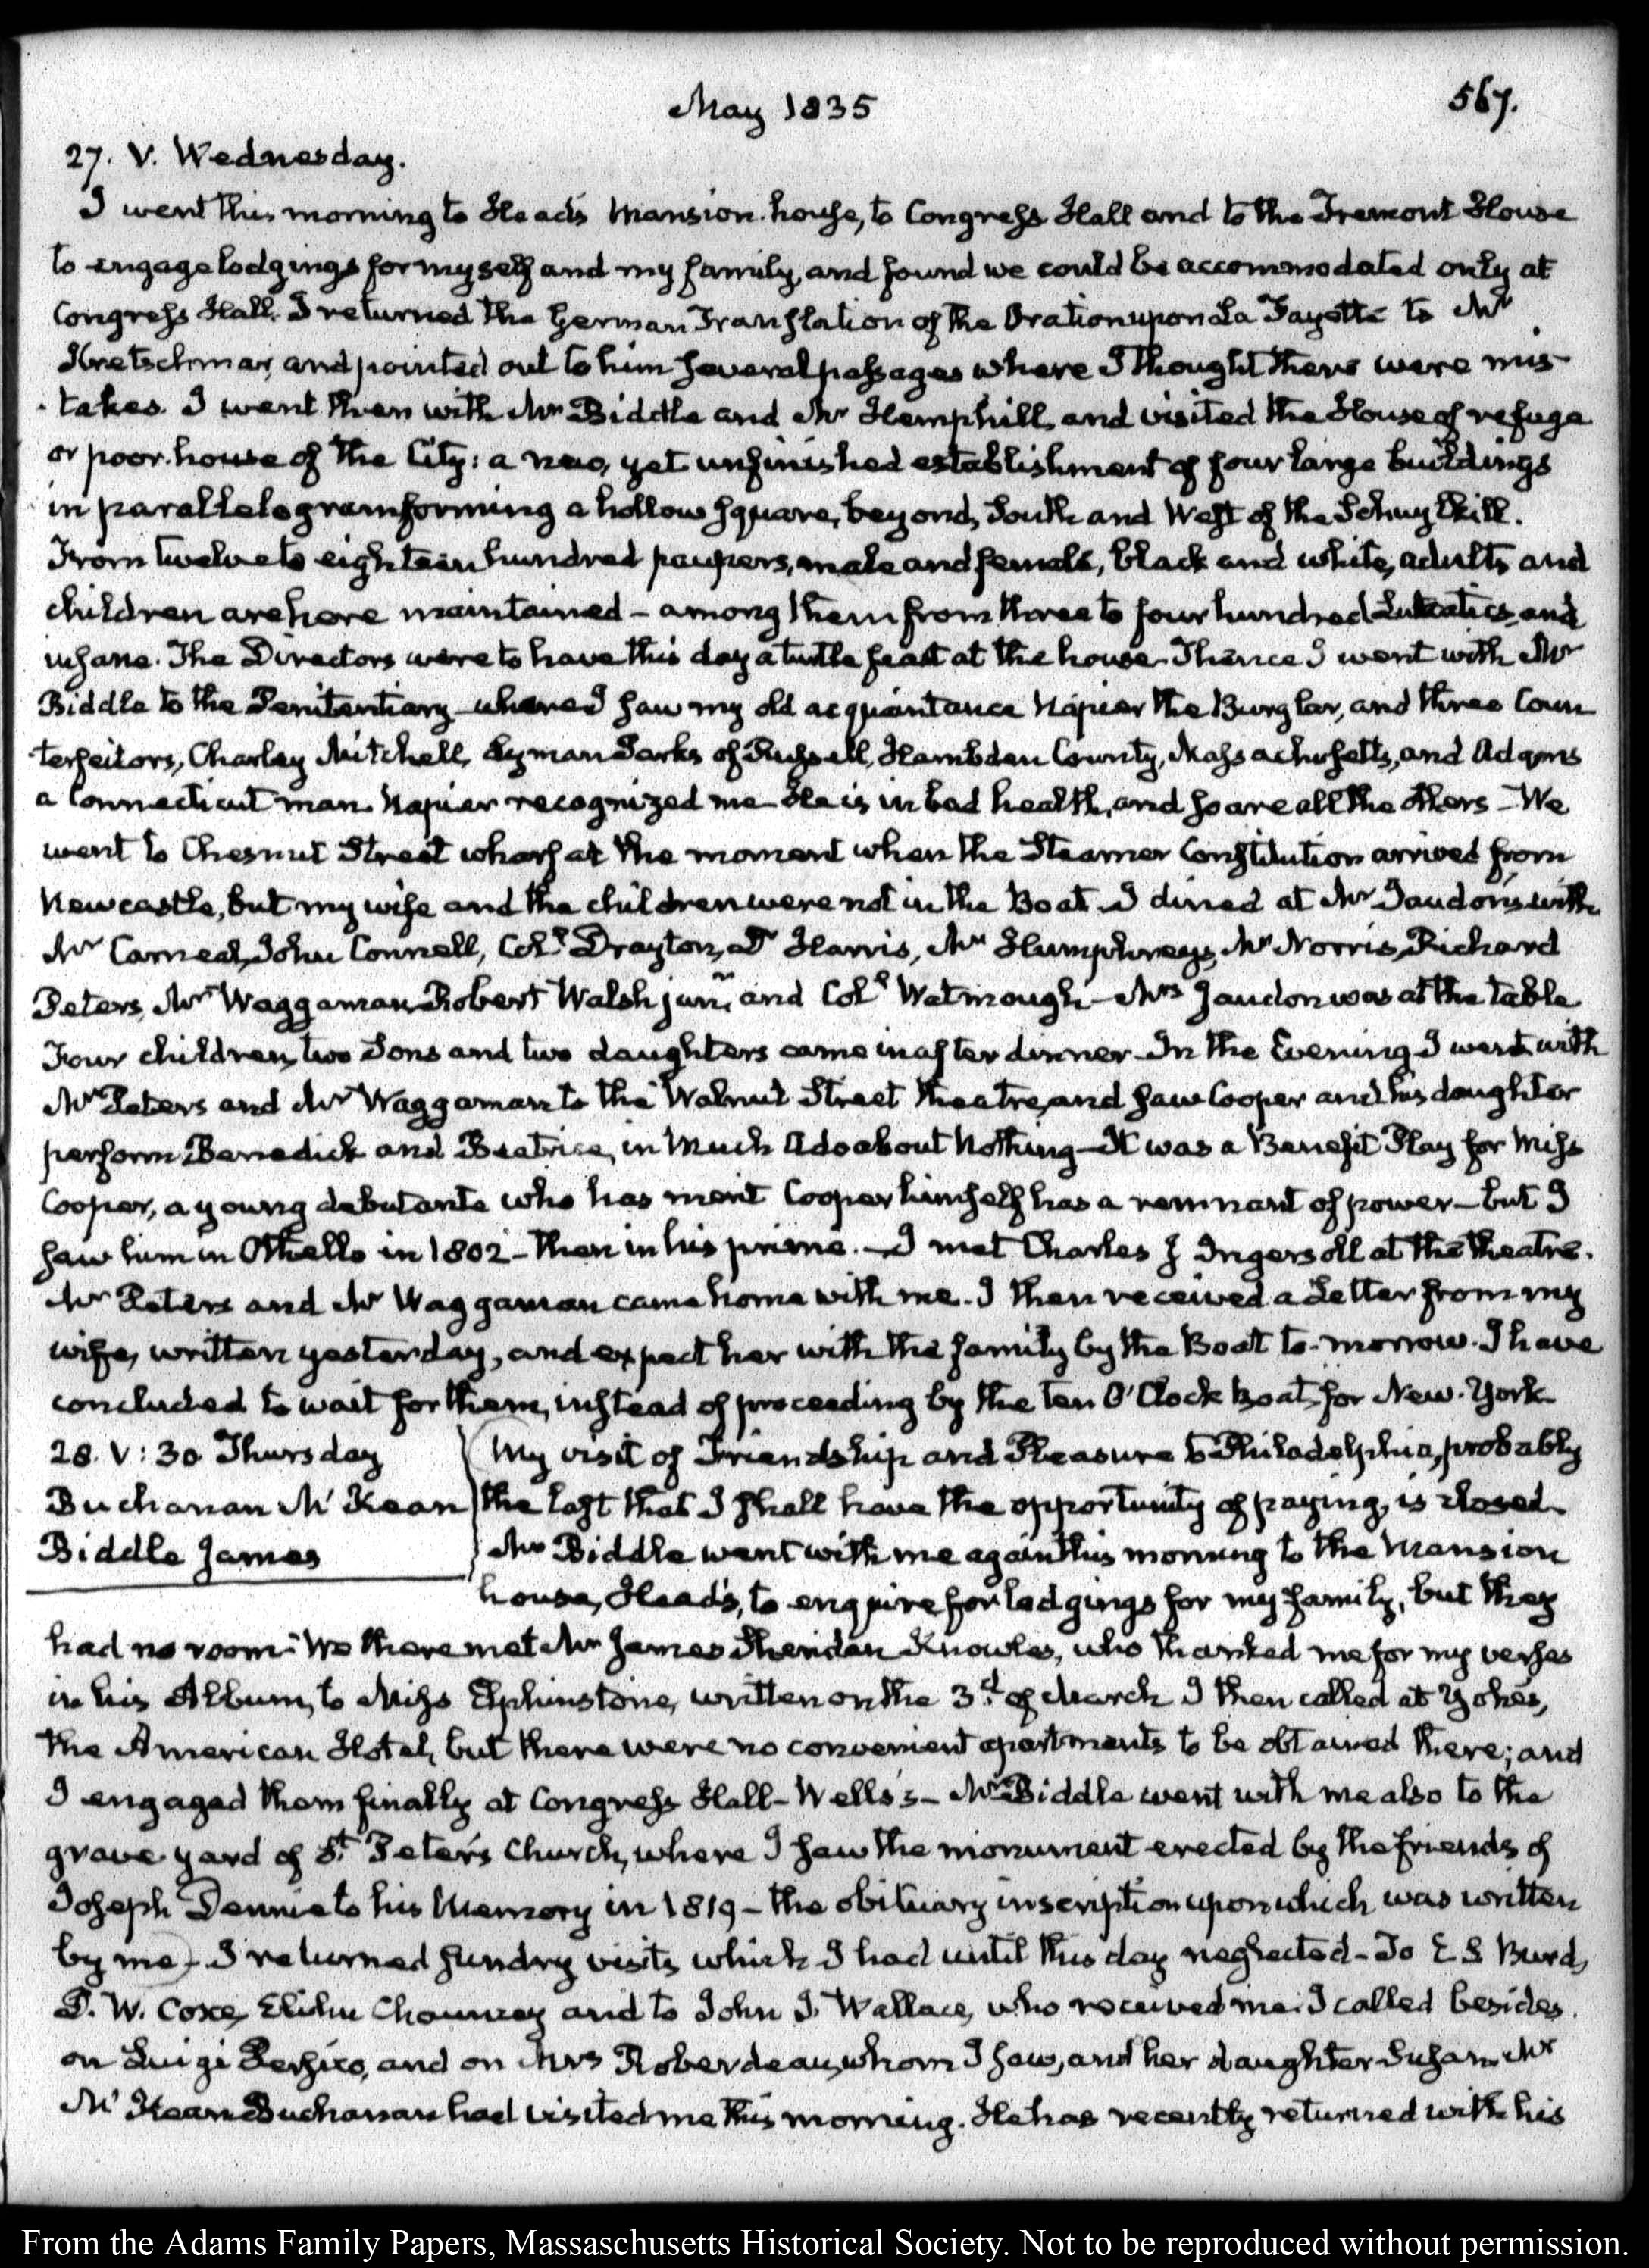 May 1835
567.
27. V. Wednesday.
I went this morning to Head's Mansion house, to Congress Hall and to the Tremont House
to engage lodgings for myself and my family, and found we could be accommodated only at
Congress Hall. I returned the German Translation of the Oration upon La Fayette to Mr
Kretschmar, and pointed out to him several passages where I thought there were mis-
takes. I went then with Mr Biddle and Mr Hemphill, and visited the House of refuge
or poor-house of the City: a new, yet unfinished establishment of four large buildings
in parallelogram forming a hollow square, beyond, South and West of the Schuylkill.
From twelve to eighteen hundred paupers, male and female, black and white, adults and
children are here maintained - among them from three to four hundred Lunatics and
insane. The Directors were to have this day a turtle feast at the house. Thence I went with Mr
Biddle to the Penitentiary where I saw my old acquaintance Napier the Burglar, and three Coun
terfeitors, Charley Mitchell, Lyman Parks of Russell, Hambden County, Massachusetts, and Adams
a Connecticut man. Napier recognized me. He is in bad health, and so are all the others - We
went to Chesnut Street wharf at the moment when the Steamer Constitution arrived from
Newcastle, but my wife and the children were not in the Boat. I dined at Mr Jaudon's with
Mr Carneal, John Connell, Coll. Drayton, Dr Harris, Mr Humphreys, Mr Norris, Richard
Peters, Mr Waggaman, Robert Walsh junr. and Coll. Watmough - Mrs Jaudon was at the table
Four children, two Sons and two daughters came in after dinner. In the Evening I went with
Mr Peters and Mr Waggaman to the Walnut Street theatre, and saw Cooper and his daughter
perform Benedick and Beatrice, in Much Ado about Nothing - It was a Benefit Play for Miss
Cooper, a young debutante who has merit Cooper himself has a remnant of power - but I
saw him in Othello in 1802 - then in his prime. - I met Charles J Ingersoll at the theatre.
Mr Peters and Mr Waggaman came home with me. I then received a Letter from my
wife, written yesterday, and expect her with the family by the Boat to-morrow. I have
concluded to wait for them, instead of proceeding by the ten O'Clock Boat for New-York
28. V: 30 Thursday
Buchanan McKean
Biddle James
My visit of Friendship and Pleasure to Philadelphia, probably
the last that I shall have the opportunity of paying, is closed.
Mr Biddle went with me again this morning to the Mansion
house, Head's, to enquire for lodgings for my family, but they
had no room - We there met Mr James Sheridan Knowles, who thanked me for my verses
in his Album, to Miss Elphinstone, written on the 3d. of March I then called at Yohe's,
the American Hotel, but there were no convenient apartments to be obtained there; and
I engaged them finally at Congress Hall - Wells's - Mr Biddle went with me also to the
grave yard of St. Peter's Church, where I saw the monument erected by the friends of
Joseph Dennie to his Memory in 1819 - the obituary inscription upon which was written
by me - I returned sundry visits which I had until this day neglected - To E S Burd,
T. W. Coxe, Elihu Chauncey and to John J. Wallace, who received me: I called besides
on Luigi Persico, and on Mrs Roberdeau, whom I saw, and her daughter Susan. Mr
McKean Buchanan had visited me this morning. He has recently returned with his
From the Adams Family Papers, Massachusetts Historical Society. Not to be reproduced without permission.